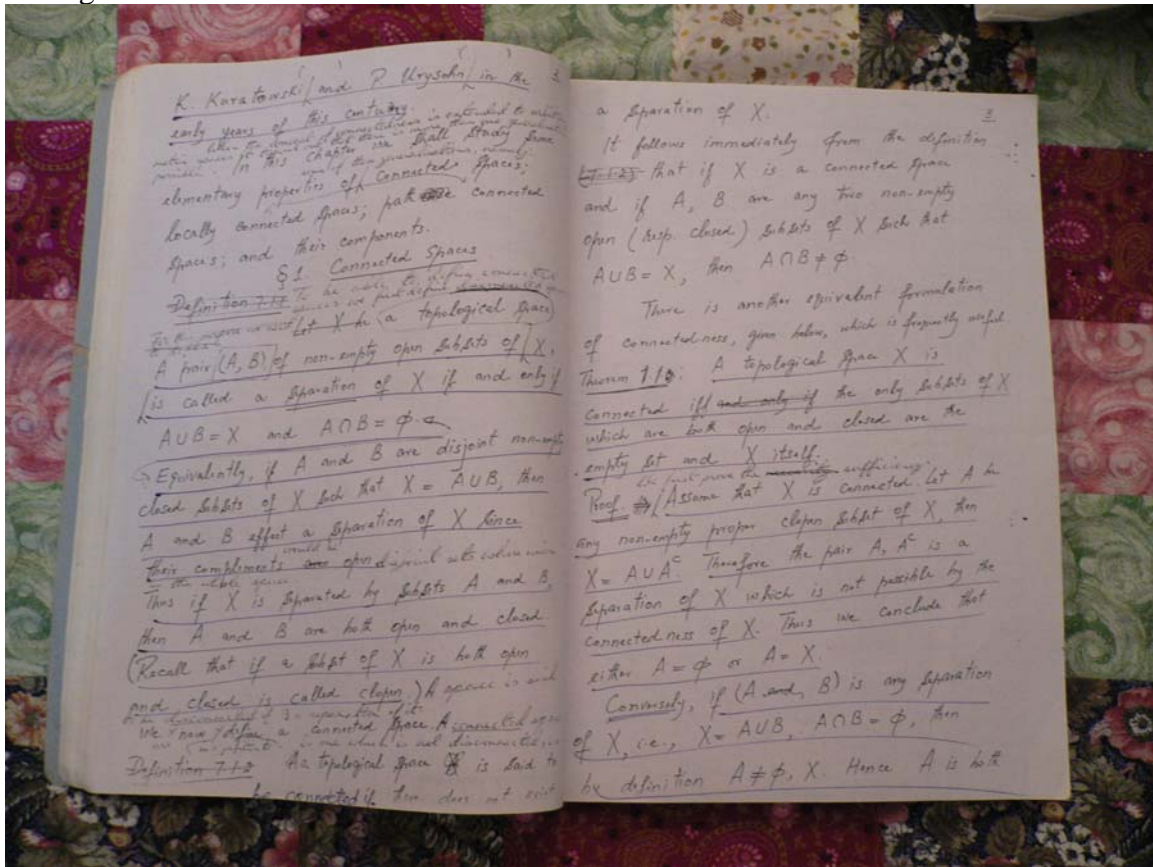 K. Karatowski and P. Urysohn in the 3
early years of this century.
When the concept of connectedness is extended to
In this chapter we shall study some
elementary properties of connected spaces;
locally connected spaces; path connected
spaces; and their components.
§ 1. Connected Spaces
Definition 7.1.1 To be able to define
Let X be a topological space
A pair (A, B) of non-empty open subsets of X,
is called a separation of X if and only if
A ∪ B = X and A ∩ B = φ.
Equivalently, if A and B are disjoint non-empty
closed subsets of X such that X = A ∪ B, then
A and B effect a separation of X since
their compliments would be open disjoint sets whose union
is the whole space
Thus if X is separated by subsets A and B,
then A and B are both open and closed.
(Recall that if a subset of X is both open
and closed is called clopen.) A space is said
to be disconnected if a separation of it
We now define a connected space. A connected space
is one which is not disconnected,
Definition 7.1.2 A topological space X is said to
be connected if there does not exist
a separation of X. 3
It follows immediately from the definition
(7.1.2) that if X is a connected space
and if A, B are any two non-empty
open (resp. closed) subsets of X such that
A∪B = X, then A∩B ≠ φ.
There is another equivalent formulation
of connectedness, given below, which is frequently useful.
Theorem 7.1.3: A topological space X is
connected iff and only if the only subsets of X
which are both open and closed are the
empty set and X itself.
We first prove the sufficiency.
Proof. ⇒ Assume that X is connected. Let A be
any non-empty proper clopen subset of X, then
X = A∪Aᶜ. Therefore the pair A, Aᶜ is a
separation of X which is not possible by the
connectedness of X. Thus we conclude that
either A = φ or A = X.
Conversely, if (A and, B) is any separation
of X, i.e., X = A∪B, A∩B = φ, then
by definition A ≠ φ, X. Hence A is both